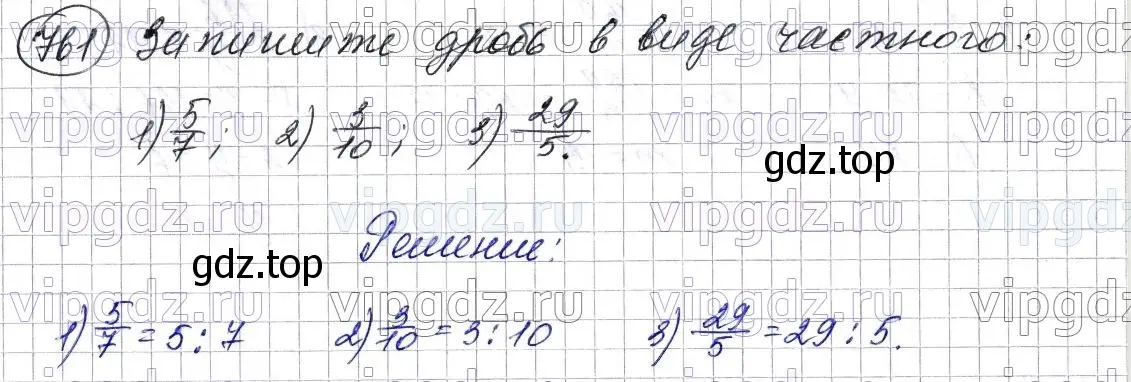 761 Запишите дробь в виде частного:
1) 5/7; 2) 3/10; 3) 29/5.
gdz.top
vipgdz.ru
Решение:
gdz.top
1) 5/7 = 5 : 7 2) 3/10 = 3 : 10 3) 29/5 = 29 : 5.